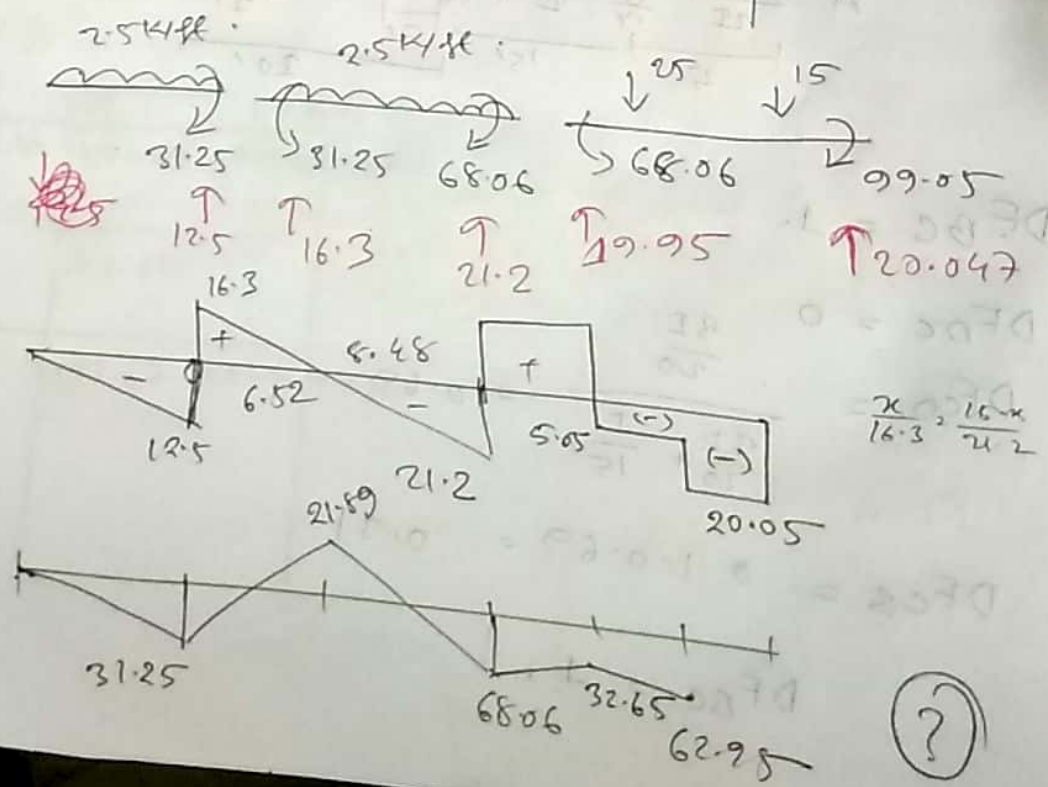 2.5K/ft. 2.5K/ft. 25 15
31.25 31.25 68.06 68.06 99.05
12.5 16.3 21.2 19.95 20.047
16.3
+ 8.48 +
- 6.52 - 5.05 (-) (-)
x/16.3 = 15-x/21.2
12.5 21.2 20.05
21.89
31.25 68.06 32.65 62.95
?